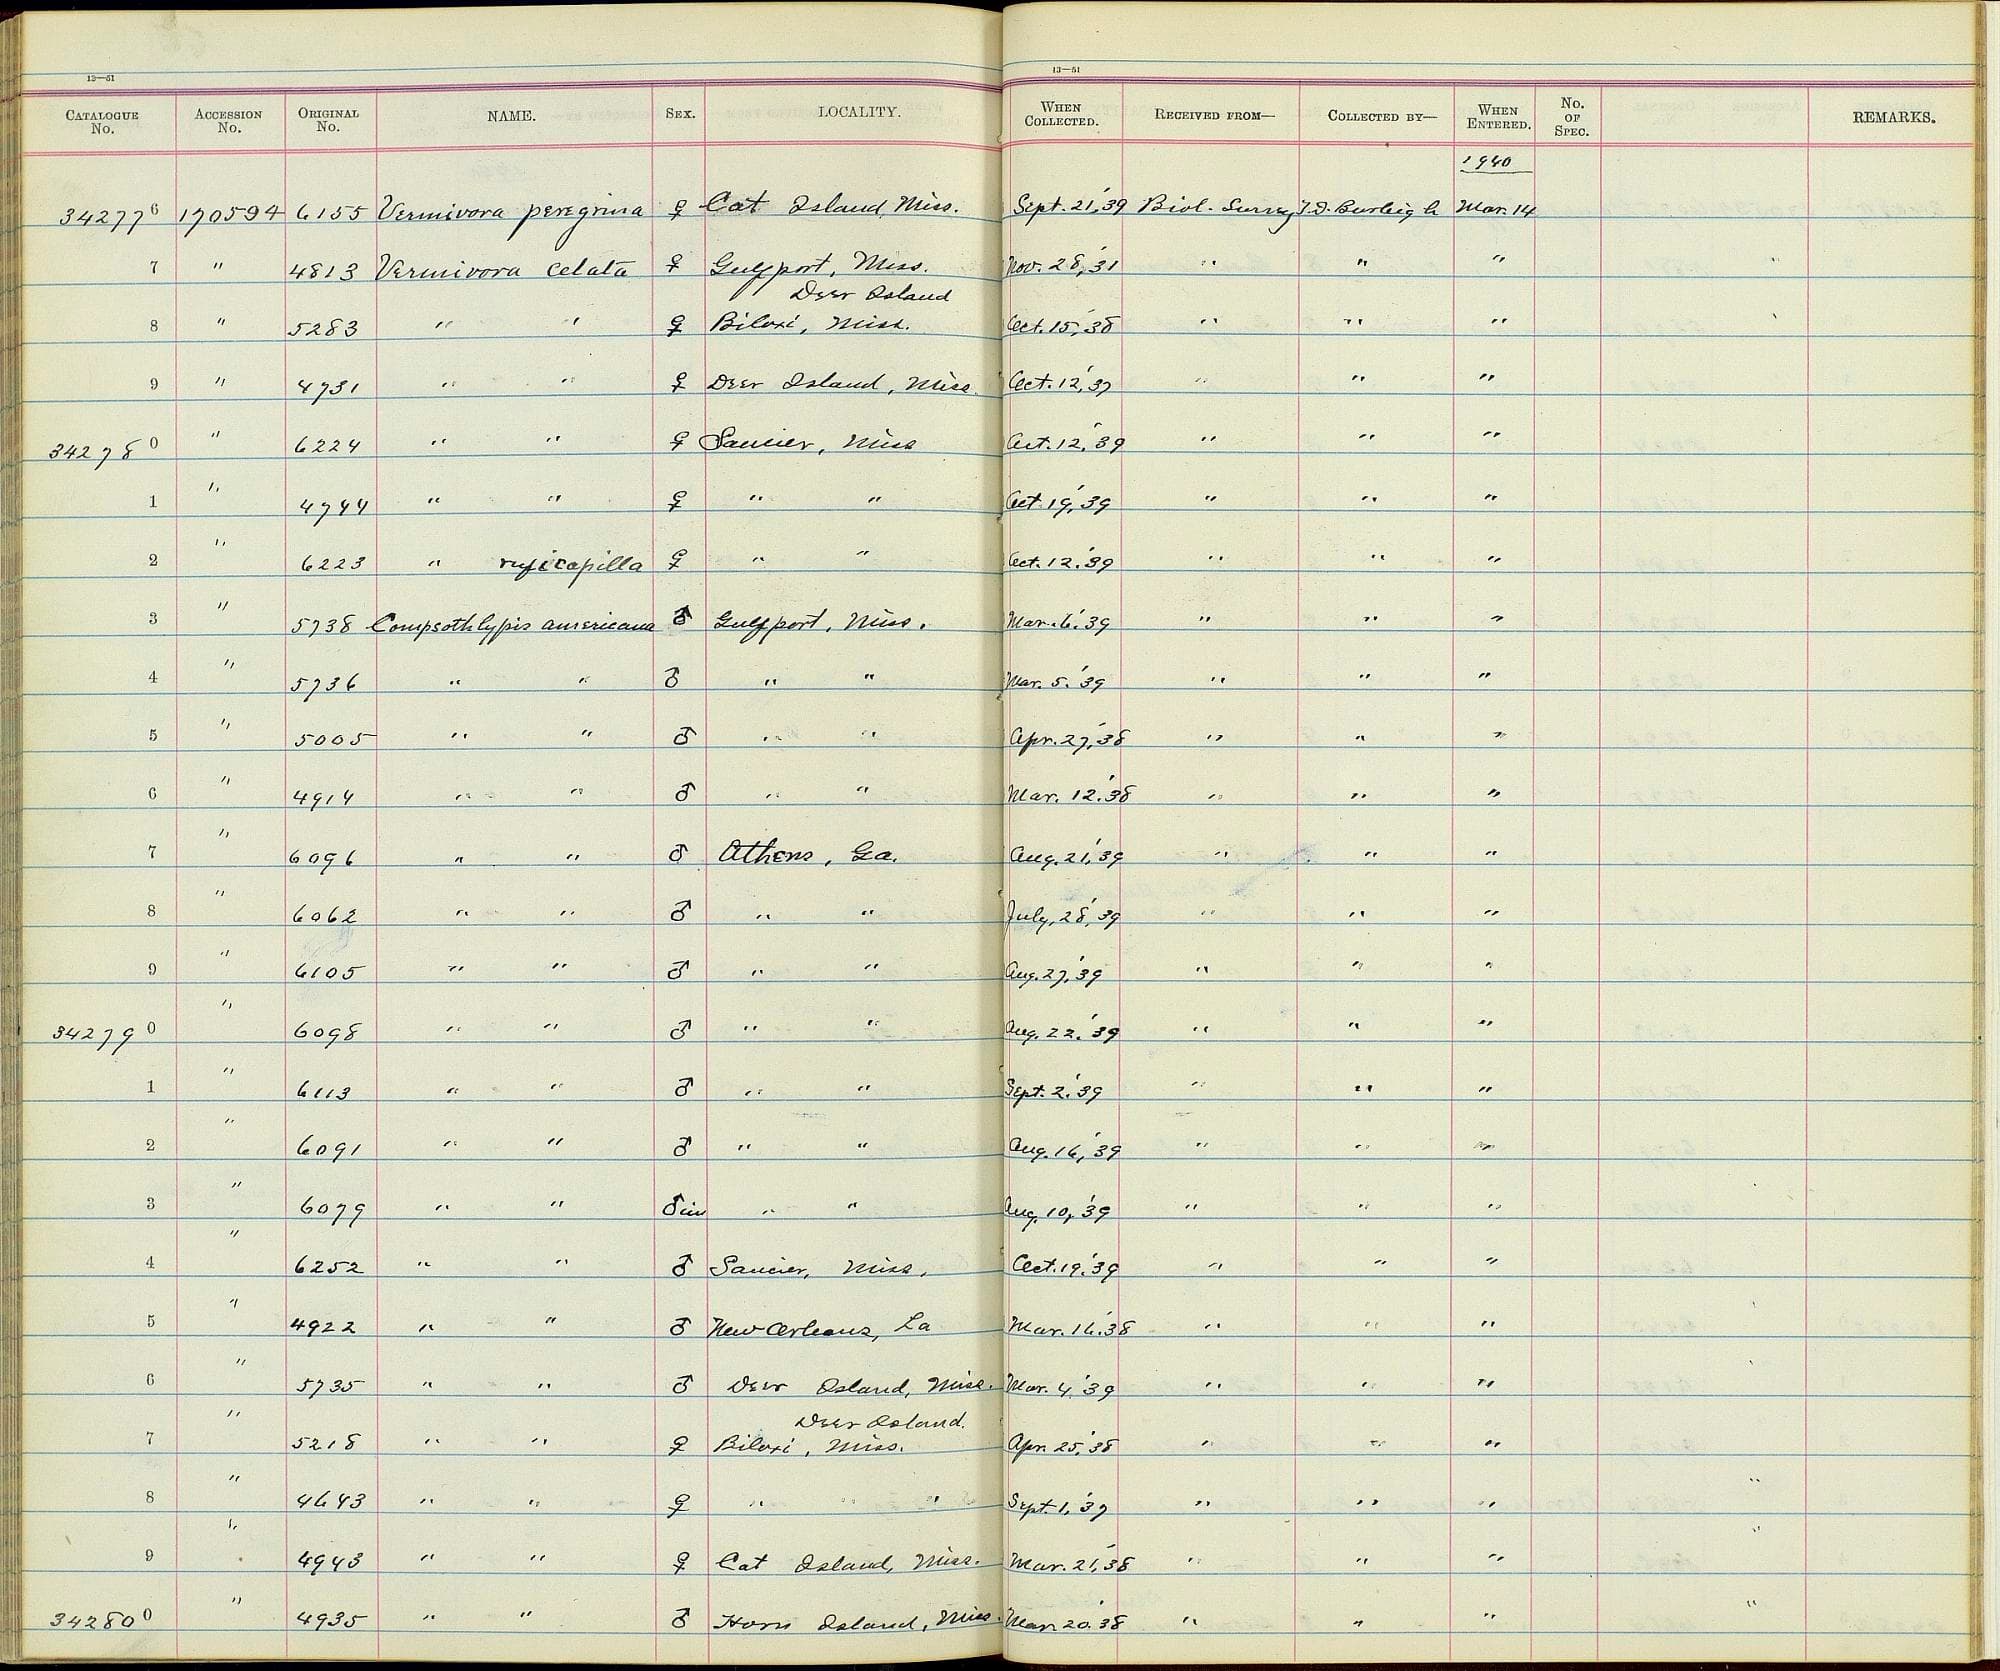 13—51
13—51
CATALOGUE No. ACCESSION No. ORIGINAL No. NAME. SEX. LOCALITY. WHEN COLLECTED. RECEIVED FROM— COLLECTED BY— WHEN ENTERED. No. OF SPEC. REMARKS.
1940
342776 170594 6155 Vermivora peregrina ♀ Cat Island, Miss. Sept. 21,'39 Biol. Survey T.D. Burleigh Mar. 14
7 " 4813 Vermivora celata ♀ Gulfport, Miss. Nov. 28,'31 " " "
Deer Island
8 " 5283 " " ♀ Biloxi, Miss. Oct. 15,'38 " " "
9 " 4731 " " ♀ Deer Island, Miss. Oct. 12,'37 " " "
342780 " 6224 " " ♀ Saucier, Miss Oct. 12,'39 " " "
1 " 4744 " " ♀ " " Oct. 19,'39 " " "
2 " 6223 " ruficapilla ♀ " " Oct. 12.'39 " " "
3 " 5738 Compsothlypis americana ♂ Gulfport, Miss. Mar. 6.'39 " " "
4 " 5736 " " ♂ " " Mar. 5.'39 " " "
5 " 5005 " " ♂ " " Apr. 27,'38 " " "
6 " 4914 " " ♂ " " Mar. 12.'38 " " "
7 " 6096 " " ♂ Athens, Ga. Aug. 21,'39 " " "
8 " 6062 " " ♂ " " July, 28,'39 " " "
9 " 6105 " " ♂ " " Aug. 27,'39 " " "
342790 " 6098 " " ♂ " " Aug. 22.'39 " " "
1 " 6113 " " ♂ " " Sept. 2.'39 " " "
2 " 6091 " " ♂ " " Aug. 16,'39 " " "
3 " 6079 " " ♂ im " " Aug. 10,'39 " " "
4 " 6252 " " ♂ Saucier, Miss. Oct. 19.'39 " " "
5 " 4922 " " ♂ New Orleans, La Mar. 16.'38 " " "
6 " 5735 " " ♂ Deer Island, Miss. Mar. 4.'39 " " "
Deer Island.
7 " 5218 " " ♀ Biloxi, Miss. Apr. 25,'38 " " "
8 " 4643 " " ♀ " " " Sept. 1,'37 " " " "
9 " 4943 " " ♀ Cat Island, Miss. Mar. 21,'38 " " " "
342800 " 4935 " " ♂ Horn Island, Miss. Mar. 20.'38 " " " "